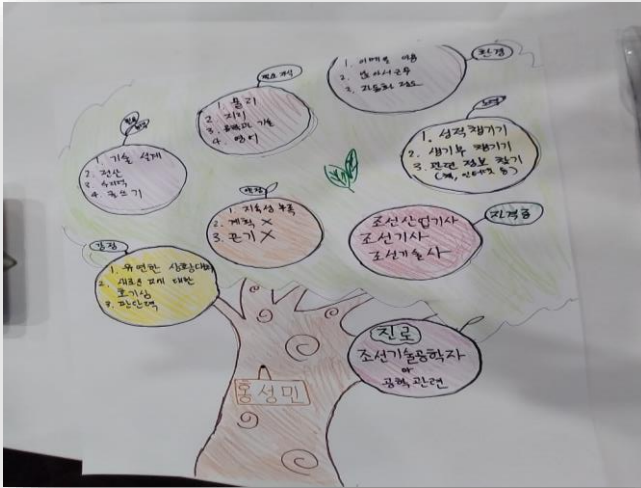 환경
1. 이메일 사용
3. 자동화 정도
필요 지식
1. 물리
2. 지리
3. 공학과 기술
4. 영어
노력
1. 성적 챙기기
2. 생기부 챙기기
3. 관련 정보 찾기
(책, 인터넷 등)
1. 기술 설계
2. 전산
3. 수리력
4. 글쓰기
단점
1. 지속성 부족
2. 계획 X
3. 끈기 X
자격증
조선산업기사
조선기사
조선기술사
강점
1. 유연한 상황대처
2. 새로운 것에 대한
호기심
3. 판단력
진로
조선기술공학자
or
공학 관련
홍성민